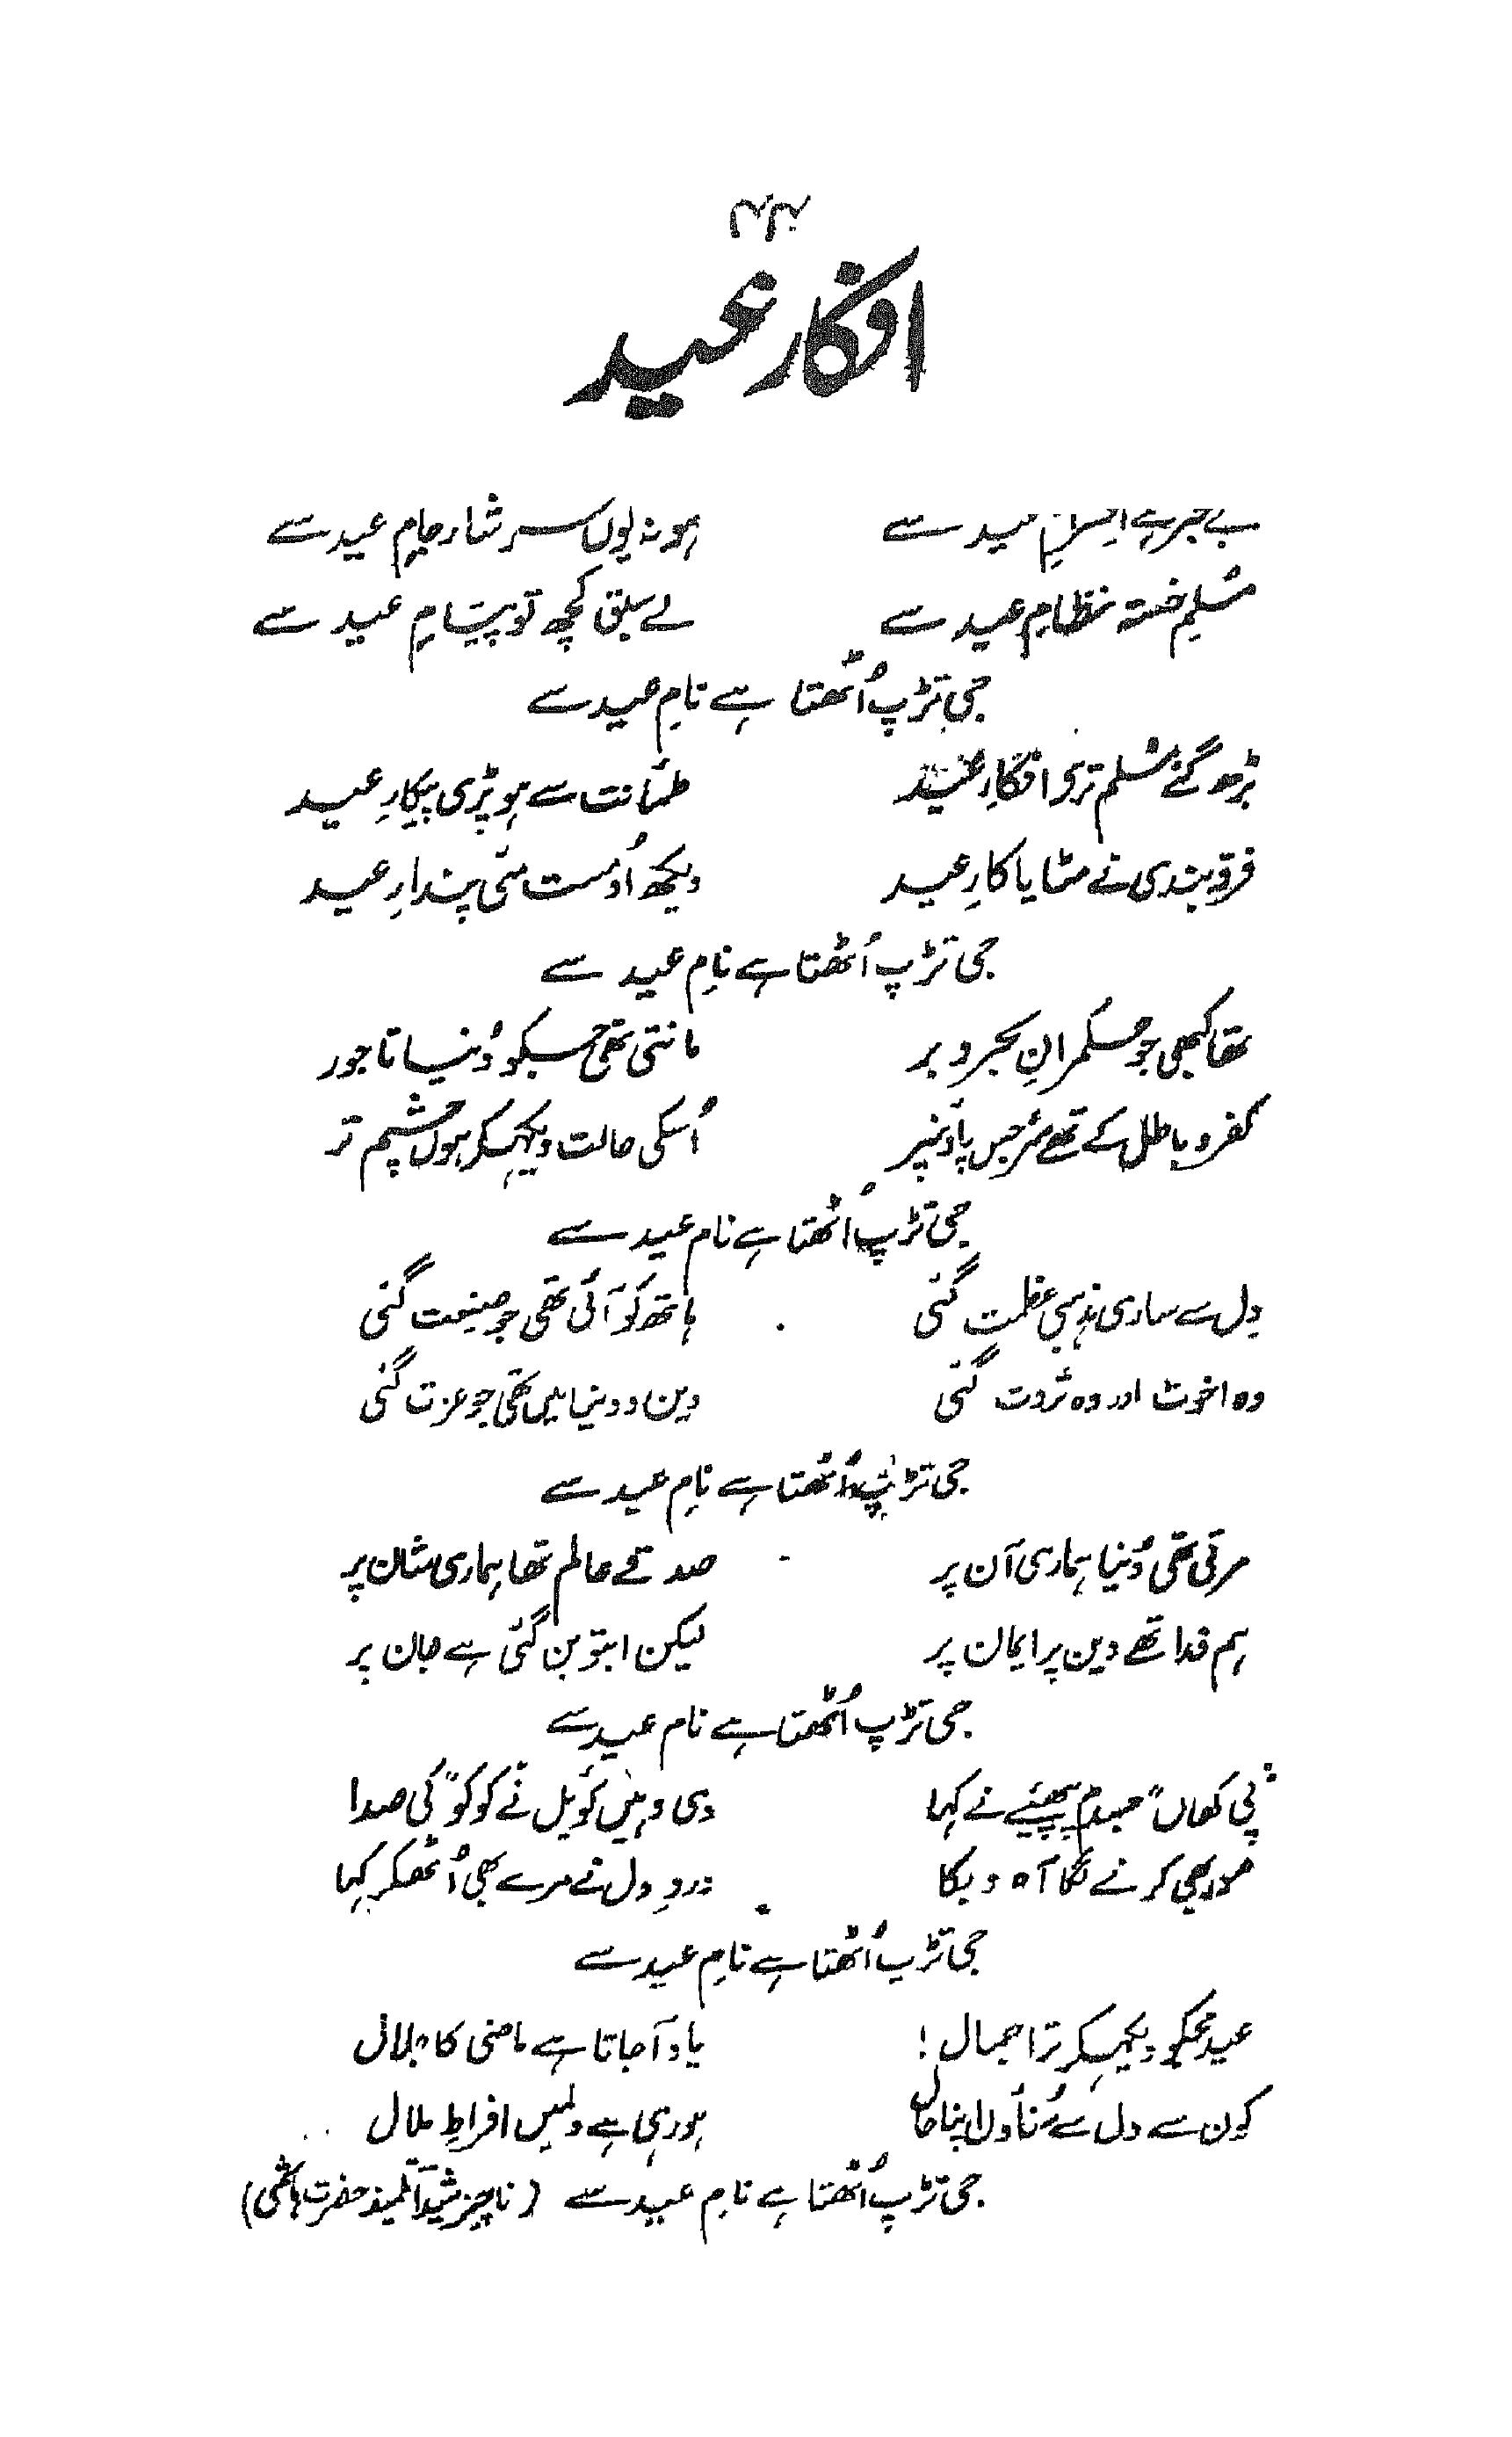 افکار عید
بے خبر ہے عید سے ہو نہ یوں سرشار جامِ عید سے
مُسلمِ خستہ نظامِ عید سے لے سبق کچھ تو پیَامِ عید سے
جی تڑپ اُٹھتا ہے نامِ عید سے
بڑھ گئے مُسلم تری افکارِ عید طمانت سے ہو پڑی پیکارِ عید
فرقہ بندی نے مٹایا کارِ عید دیکھ اُو مست مئی پندارِ عید
جی تڑپ اُٹھتا ہے نامِ عید سے
تھا کبھی جو حکمرانِ بحر و بر مانتی تھی جسکو دُنیا تاجور
کفر و باطل کے تھے سر جس پاؤنپر اُسکی حالت دیکھکر ہوں چشم تر
جی تڑپ اُٹھتا ہے نام عید سے
دِل سے ساری مذہبی عظمت گئی ہاتھ کو آئی تھی جو صنعت گئی
وہ اخوت اور وہ ثروت گئی دین و دنیا میں تھی جو عزت گئی
جی تڑپ اُٹھتا ہے نامِ عید سے
مرتی تھی دُنیا ہماری آن پر صدقے عالم تھا ہماری شان پر
ہم فدا تھے دین پر ایمان پر لیکن ابتو بن گئی ہے جان پر
جی تڑپ اُٹھتا ہے نام عید سے
"پی کھاں" جسدم پپیہئے نے کہا دی وہیں کوئیل نے "کوکو" کی صدا
مور بھی کرنے لگا آہ و بکا دردِ دل نے مرے بھی اُٹھکر کہا
جی تڑپ اُٹھتا ہے نامِ عید سے
عید تجھکو دیکھکر ترا جمال ! یاد آجاتا ہے ماضی کا جلال
کون سے دل سے سُناؤں اپنا حال ہو رہی ہے دلمیں افراطِ ملال
جی تڑپ اُٹھتا ہے نامِ عید سے (ناچیز شیدآ تلمیذ حضرت ہاشمی)